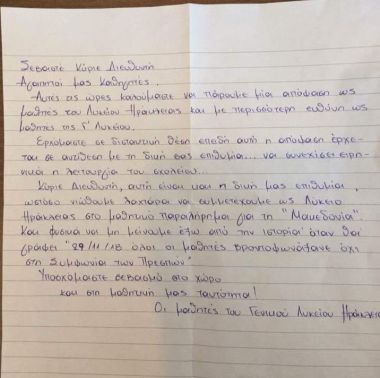 Σεβαστέ Κύριε Διευθυντή
Αγαπητοί μας Καθηγητές
Αυτές τις ώρες καλούμαστε να πάρουμε μία απόφαση ως
μαθητές του Λυκείου Ηράκλειας και με περισσότερη ευθύνη ως
μαθητές της Γ' Λυκείου.
Ερχόμαστε σε δύσκολη θέση επειδή αυτή η απόφαση έρχε-
ται σε αντίθεση με τη δική σας επιθυμία... να συνεχίσει ειρη-
νικά η λειτουργία του σχολείου...
Κύριε Διευθυντή, αυτή είναι και η δική μας επιθυμία,
ωστόσο νιώθουμε λαχτάρα να συμμετέχουμε ως Λύκειο
Ηράκλειας στο μαθητικό παραλήρημα για τη "Μακεδονία".
Και φυσικά να μη μείνουμε έξω από την ιστορία όταν θα
γράφει "29/11/18 όλοι οι μαθητές βροντοφωνάξανε όχι
στη Συμφωνία των Πρεσπών"
Υποσχόμαστε σεβασμό στο χώρο
και στη μαθητική μας ταυτότητα!
Οι μαθητές του Γενικού Λυκείου Ηράκλειας